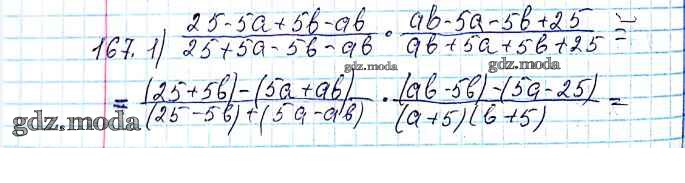 167. 1) (25-5a+5b-ab)/(25+5a-5b-ab) · (ab-5a-5b+25)/(ab+5a+5b+25) =
gdz.moda gdz.moda
= ((25+5b)-(5a+ab))/((25-5b)+(5a-ab)) · ((ab-5b)-(5a-25))/((a+5)(b+5)) =
gdz.moda